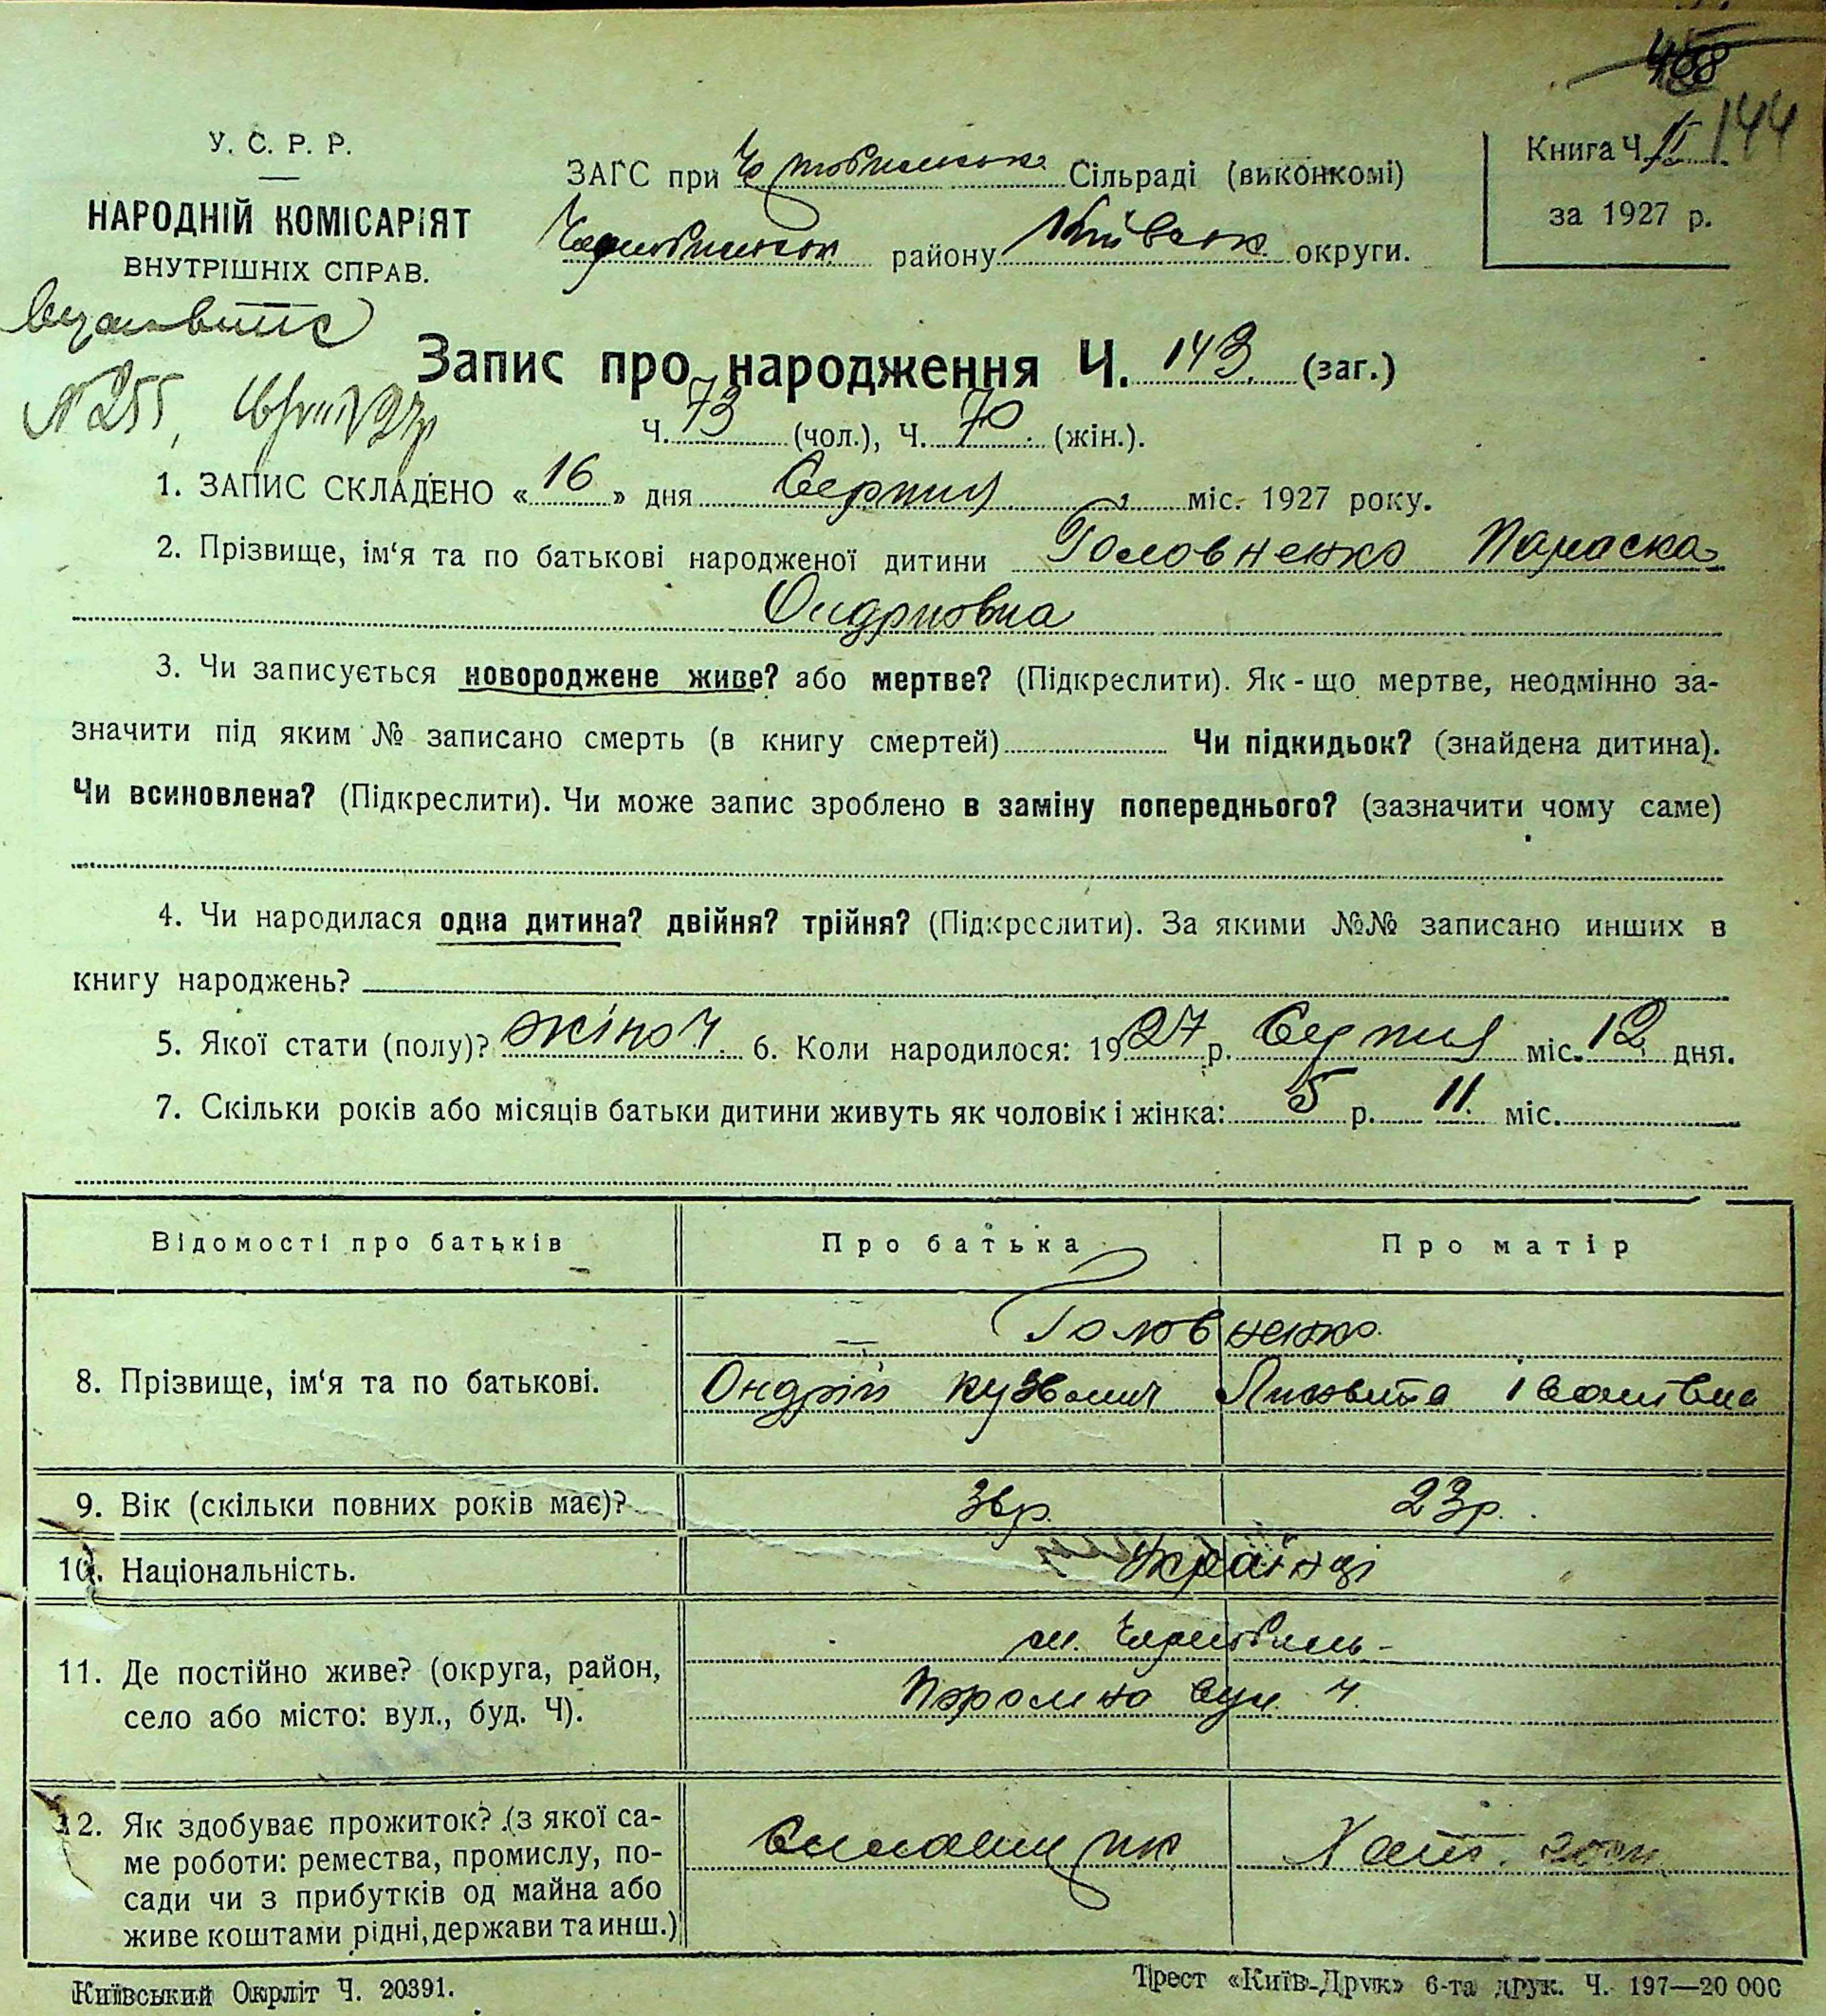 468
144
У. С. Р. Р.
НАРОДНІЙ КОМІСАРІЯТ
ВНУТРІШНІХ СПРАВ.
ЗАГС при Чорнобильськ. Сільраді (виконкомі)
Чорнобильськ району Київськ. округи.
Книга Ч. II
за 1927 р.
№ 255,
Запис про народження Ч. 143. (заг.)
Ч. 73 (чол.), Ч. 70 (жін.).
1. ЗАПИС СКЛАДЕНО « 16 » дня Серпня міс. 1927 року.
2. Прізвище, ім‘я та по батькові народженої дитини Головненко Параска
Ондриовна
3. Чи записується новороджене живе? або мертве? (Підкреслити). Як-що мертве, неодмінно за-
значити під яким № записано смерть (в книгу смертей) Чи підкидьок? (знайдена дитина).
Чи всиновлена? (Підкреслити). Чи може запис зроблено в заміну попереднього? (зазначити чому саме)
4. Чи народилася одна дитина? двійня? трійня? (Підкреслити). За якими №№ записано инших в
книгу народжень?
5. Якої стати (полу)? жіноч. 6. Коли народилося: 1927 р. Серпня міс. 12 дня.
7. Скільки років або місяців батьки дитини живуть як чоловік і жінка: 5 р. 11. міс.
Відомості про батьків Про батька Про матір
Головненко.
8. Прізвище, ім‘я та по батькові. Ондрій Кузьмич Лизавета Іванівна
9. Вік (скільки повних років має)? 36р. 23р.
10. Національність. Українці
м. Чорнобиль-
11. Де постійно живе? (округа, район,
село або місто: вул., буд. Ч). вул. Ч.
12. Як здобуває прожиток? (з якої са-
ме роботи: ремества, промислу, по-
сади чи з прибутків од майна або
живе коштами рідні, держави та инш.)
Хатн. госп.
Київський Окрліт Ч. 20391.
Трест «Київ-Друк» 6-та друк. Ч. 197—20 000